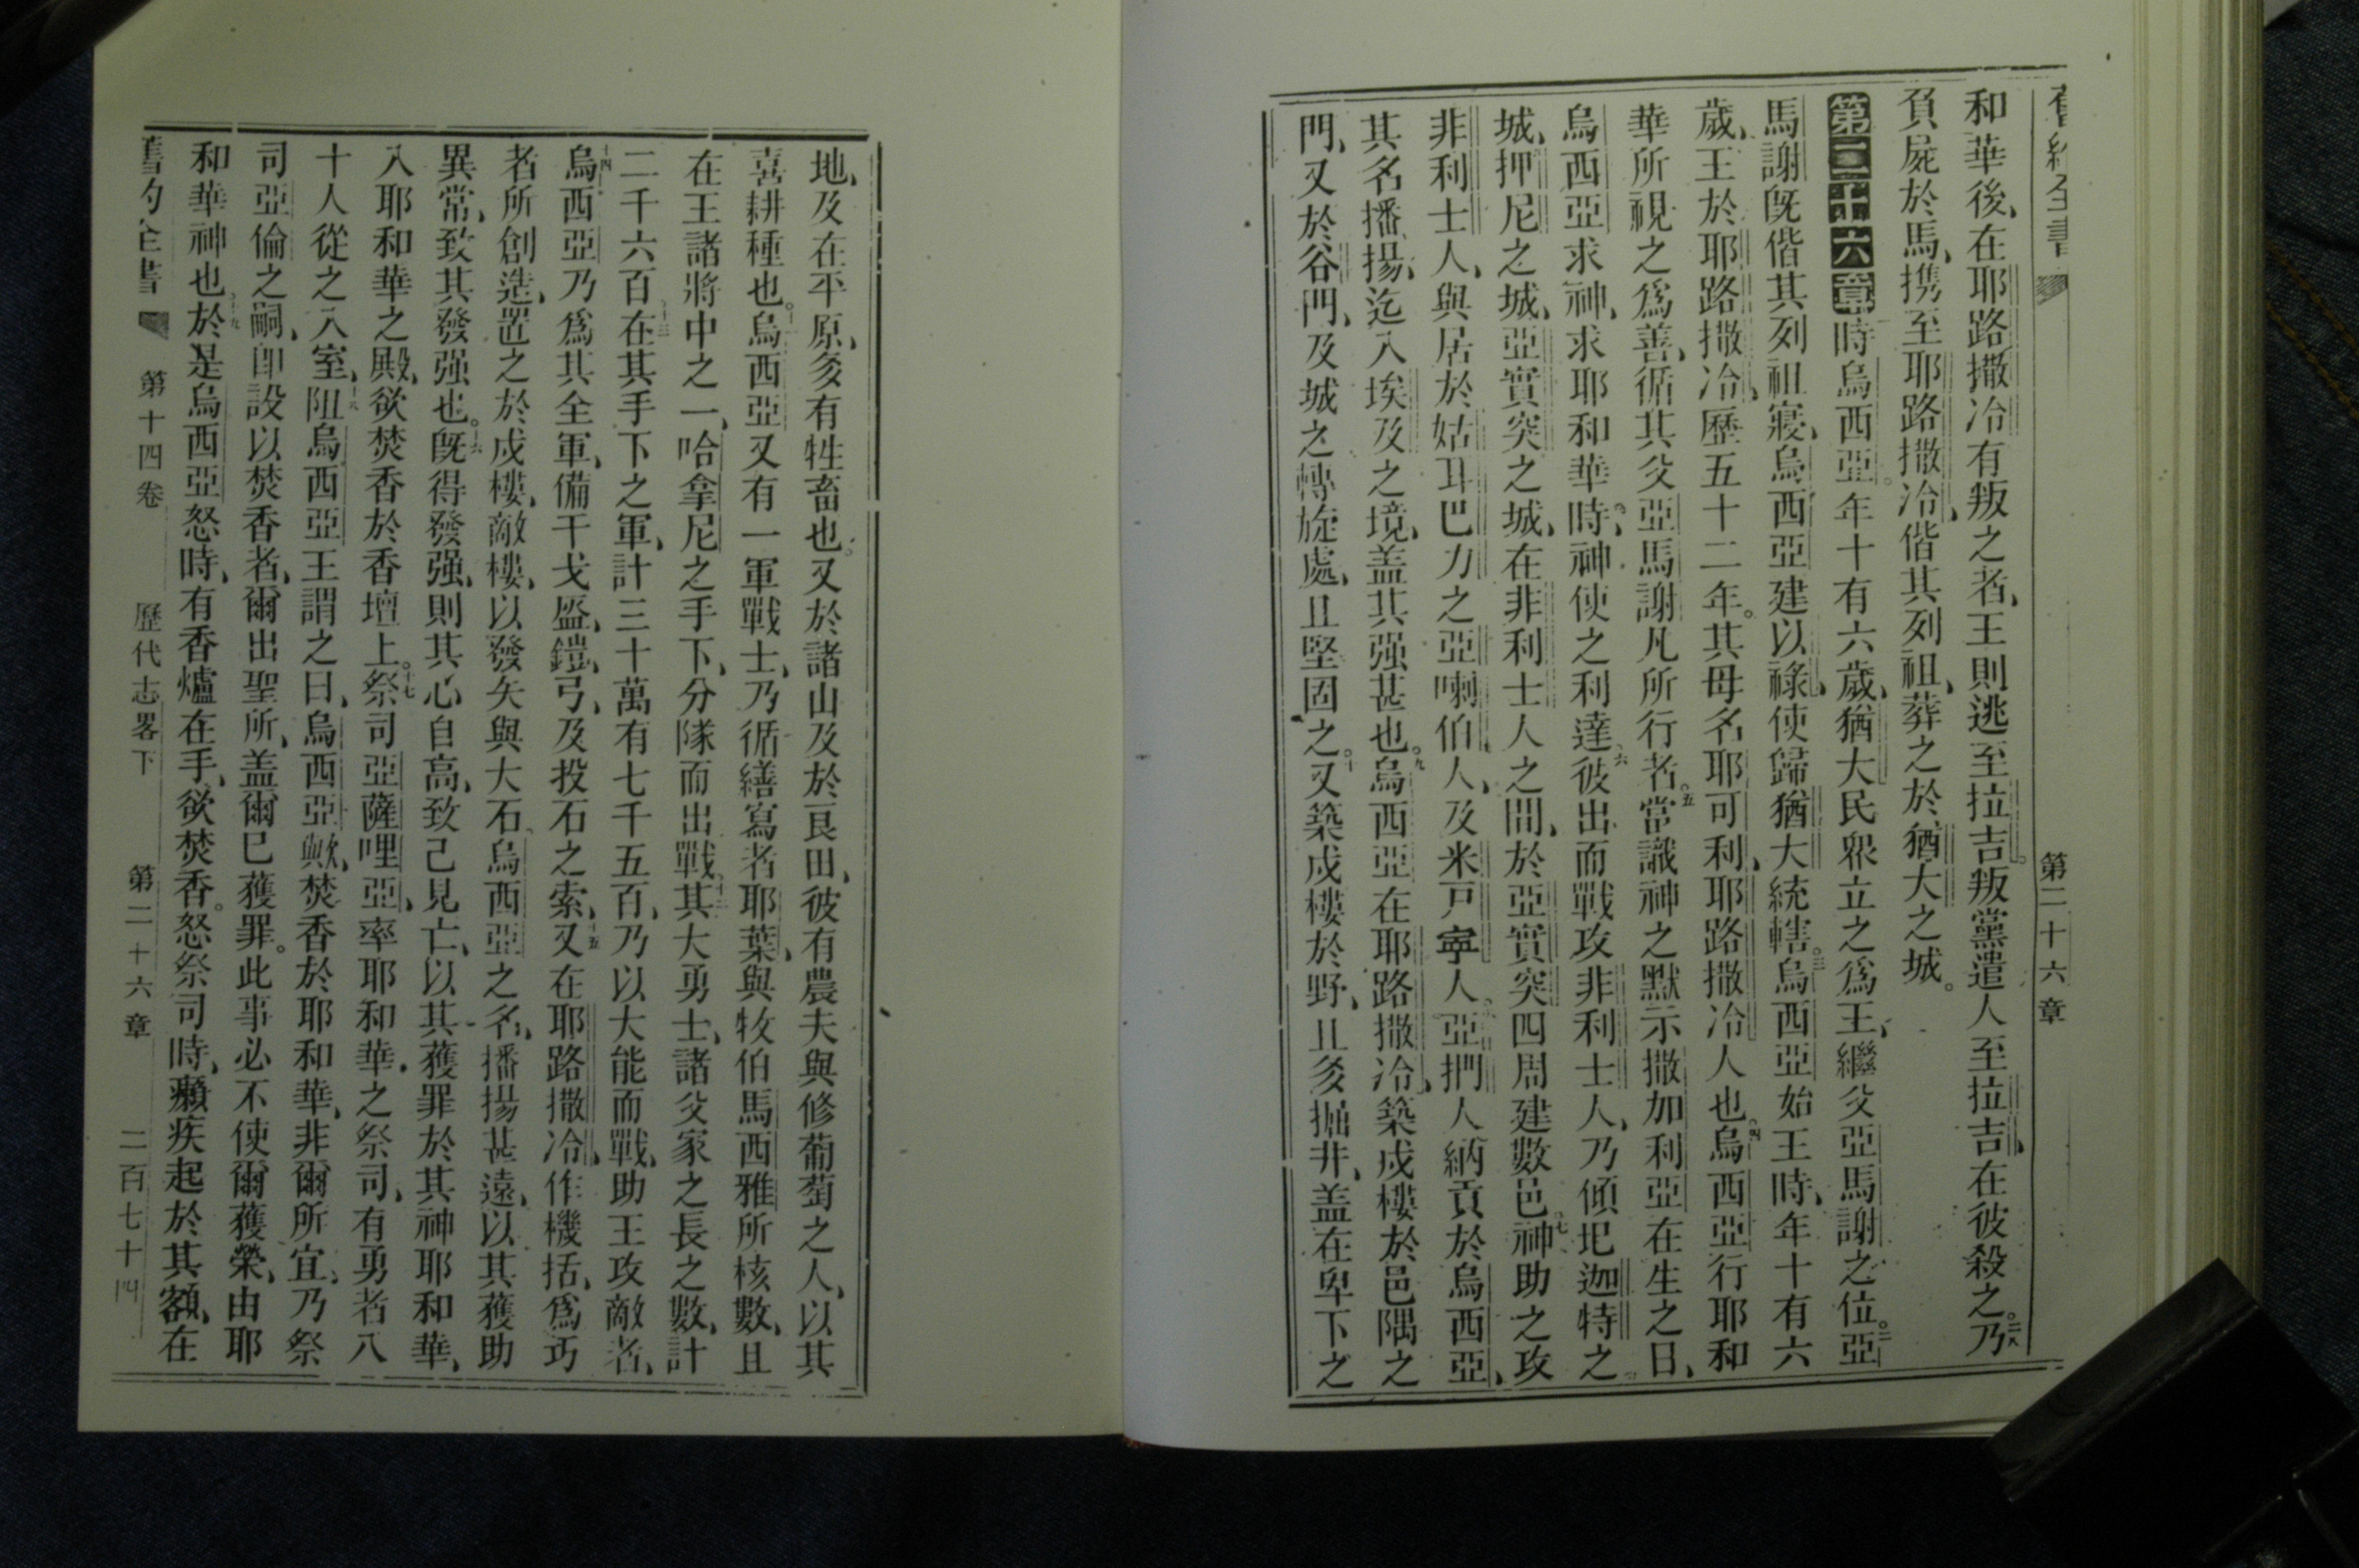 舊約全書 第二十六章
和華後、在耶路撒冷有叛之者、王則逃至拉吉。叛黨遣人至拉吉、在彼殺之。二八乃
負屍於馬、携至耶路撒冷、偕其列祖、葬之於猶大之城。
第二十六章時烏西亞。年十有六歲、猶大民衆立之爲王、繼父亞馬謝之位。二亞
馬謝旣偕其列祖寢、烏西亞建以祿、使歸猶大統轄。三烏西亞始王時、年十有六
歲、王於耶路撒冷、歷五十二年。其母名耶可利、耶路撒冷人也。四烏西亞行耶和
華所視之爲善、循其父亞馬謝凡所行者。五當識神之默示撒加利亞在生之日、
烏西亞求神、求耶和華時、神使之利達。六彼出而戰攻非利士人、乃傾圯迦特之
城、押尼之城、亞實突之城、在非利士人之間、於亞實突四周建數邑。七神助之攻
非利士人、與居於姑耳巴力之亞喇伯人、及米戶寕人。八亞捫人納貢於烏西亞、
其名播揚、迄入埃及之境、盖其强甚也。九烏西亞在耶路撒冷、築戍樓於邑隅之
門、又於谷門、及城之轉旋處、且堅固之。十又築戍樓於野、且多掘井、盖在卑下之
地、及在平原、多有牲畜也。又於諸山及於艮田、彼有農夫與修葡萄之人、以其
喜耕種也。十一烏西亞又有一軍戰士、乃循繕寫者耶葉、與牧伯馬西雅所核數、且
在王諸將中之一、哈拿尼之手下、分隊而出戰。十二其大勇士、諸父家之長之數、計
二千六百。十三在其手下之軍、計三十萬有七千五百、乃以大能而戰、助王攻敵者、
十四烏西亞乃爲其全軍、備干戈盔、鎧、弓、及投石之索、十五又在耶路撒冷、作機括、爲巧
者所創造、置之於戍樓、敵樓、以發矢與大石、烏西亞之名、播揚甚遠、以其獲助
異常、致其發强也。十六旣得發强、則其心自高、致己見亡、以其獲罪於其神耶和華、
入耶和華之殿、欲焚香於香壇上。十七祭司亞薩哩亞、率耶和華之祭司、有勇者八
十人從之入室、十八阻烏西亞王謂之曰、烏西亞歟、焚香於耶和華、非爾所宜、乃祭
司亞倫之嗣、卽設以焚香者、爾出聖所、盖爾已獲罪。此事必不使爾獲榮、由耶
和華神也。十九於是烏西亞怒時、有香爐在手、欲焚香。怒祭司時、癩疾起於其額、在
舊約全書 第十四卷 歷代志畧下 第二十六章 二百七十四